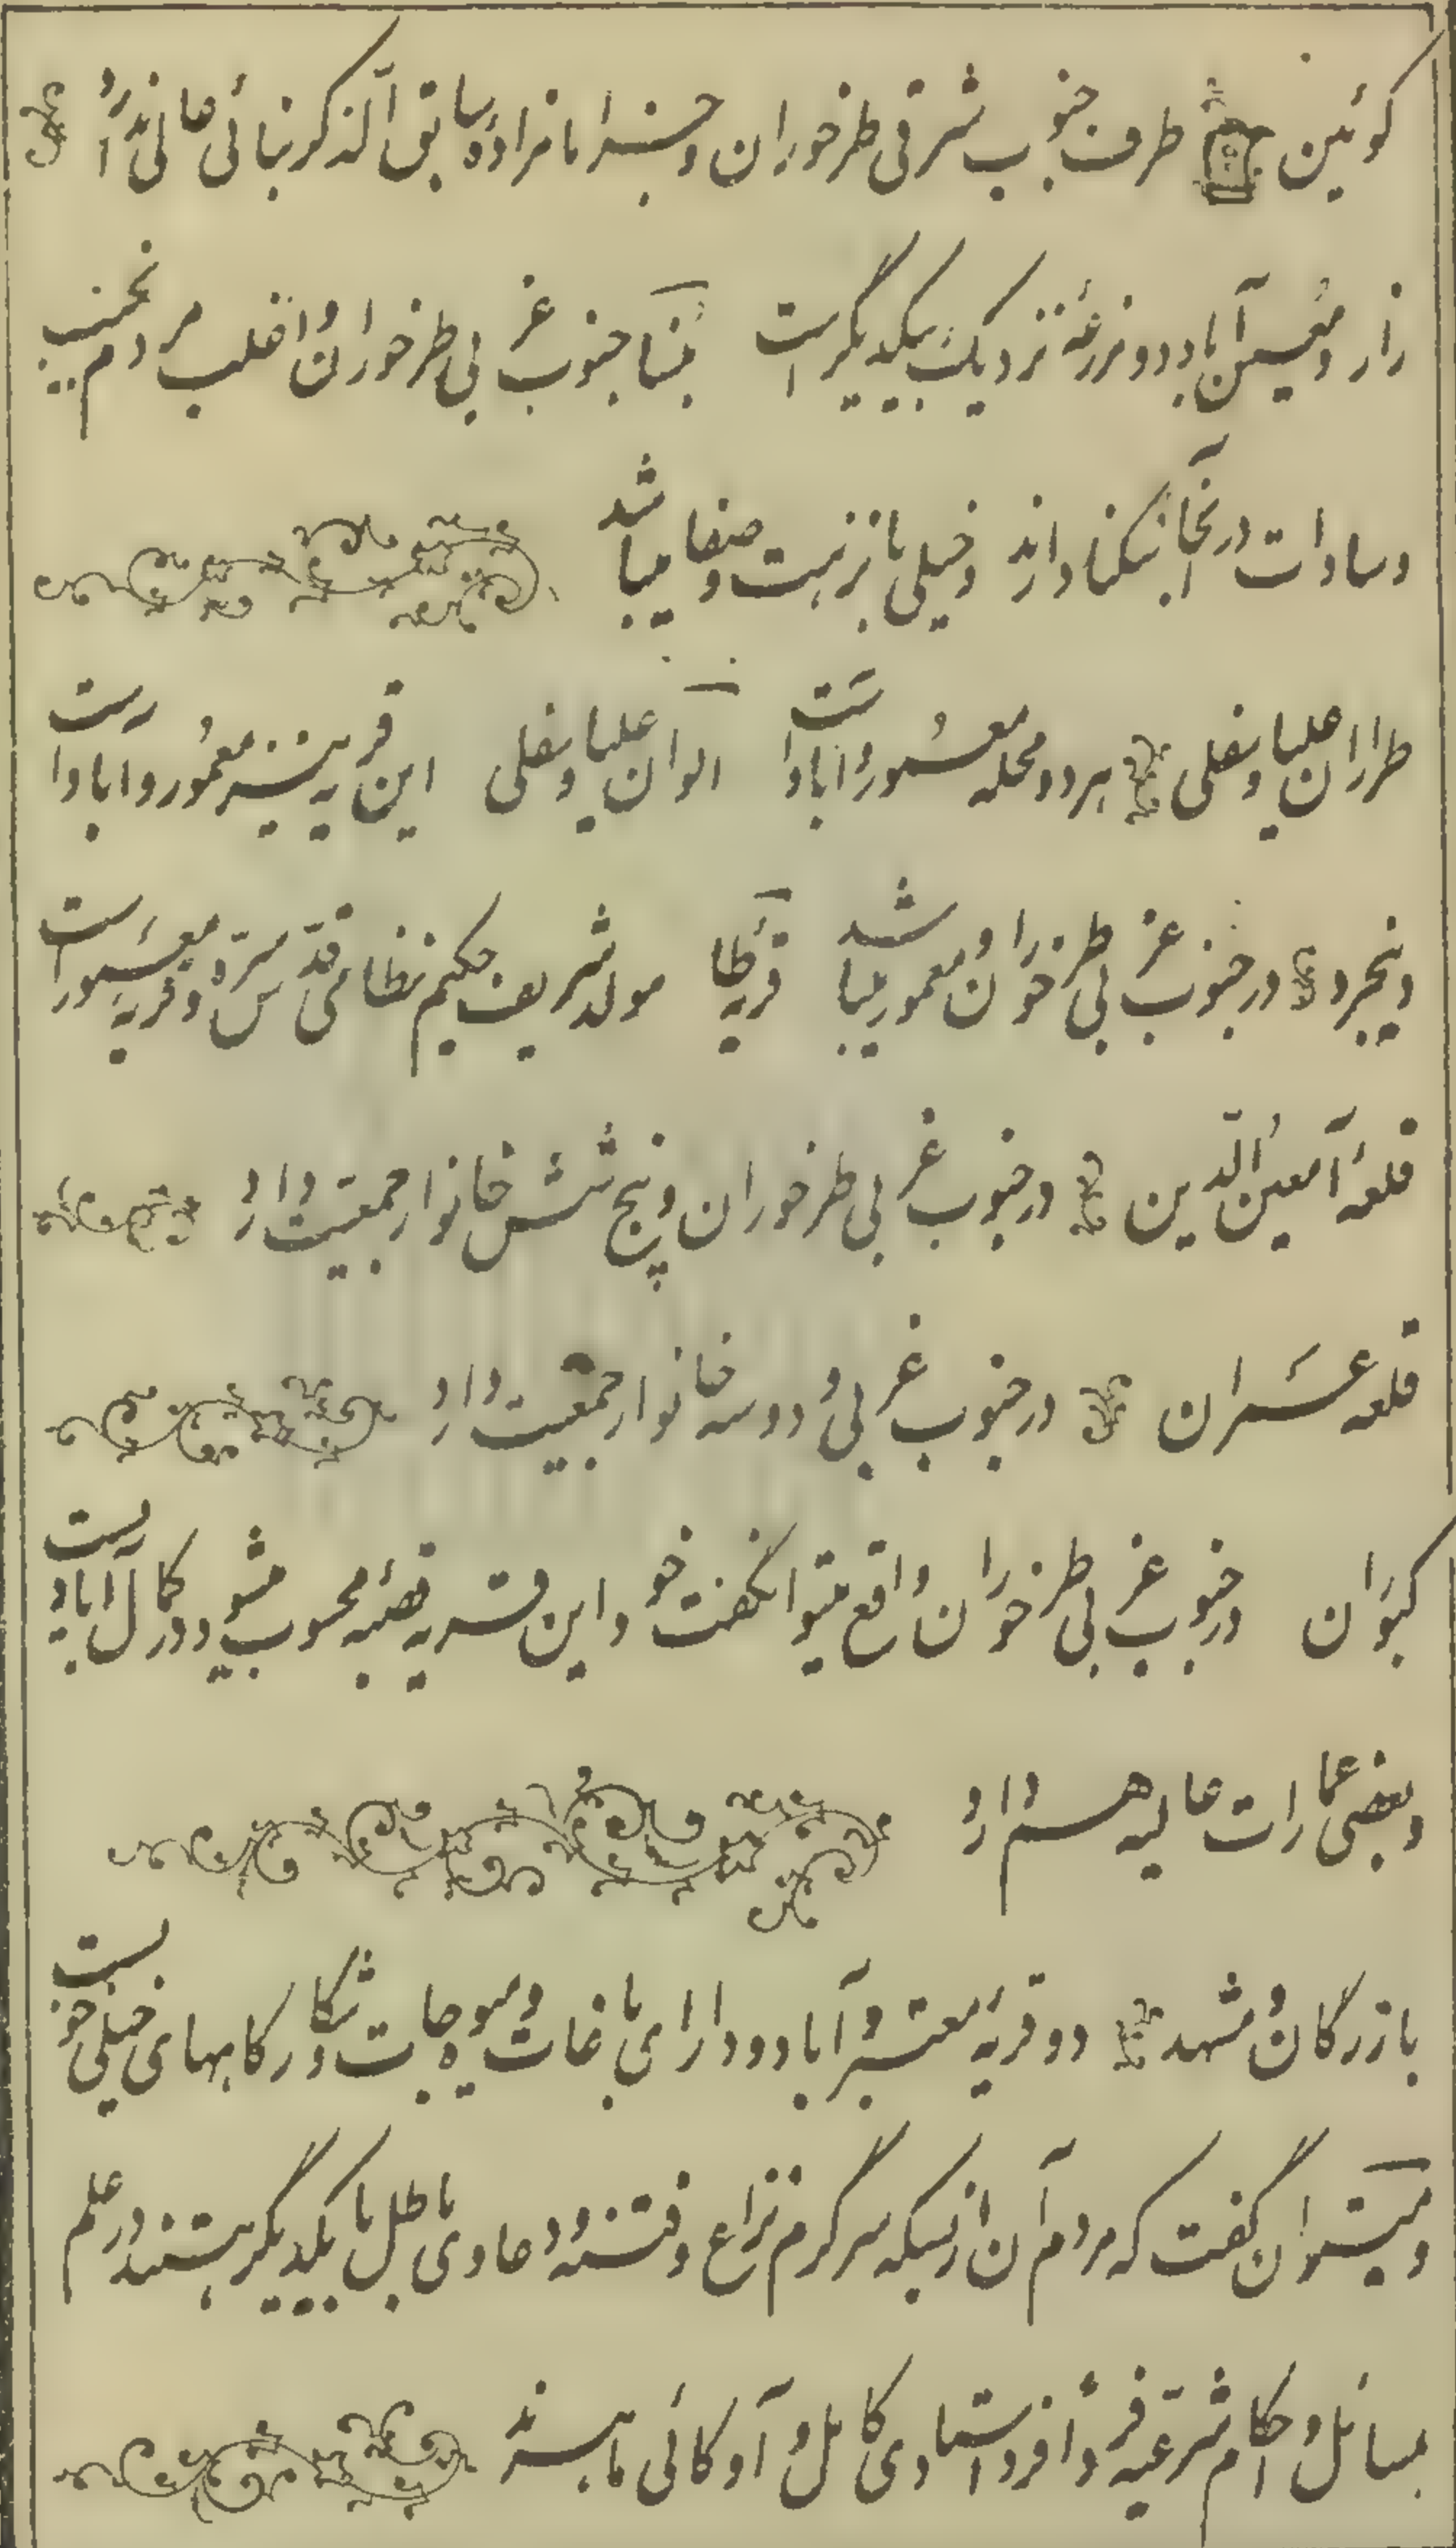 کوئین طرف جنوب شرقی طرخوران و حسن امامزاده سابق الذکر بنائی عالی ندارد
زار و معین آباد دو مزرعه نزدیک بیکدیگر است جنوب غربی طرخوران و اغلب مردم نجیب
و سادات در آنجا سکنا دارند و خیلی با نزهت و صفا میباشد
طرازان علیا و سفلی هر دو محله معمور و آباد است الوان علیا و سفلی این قریه نیز معمور و آباد است
دینجرد در جنوب غربی طرخوران و معمور میباشد قریه طا مولد شریف حکیم نظامی قدّس سرّه و قریه معمور است
قلعهٔ معین الدّین در جنوب غربی طرخوران و پنج شش خانوار جمعیت دارد
قلعه عسران در جنوب غربی و دو سه خانوار جمعیت دارد
کبوران در جنوب غربی طرخوران واقع میتوان گفت خود این قریه قصبه محسوب میشود و در کمال آبادیست
و بعضی عمارات عالیه هم دارد
بازرگان و مشهد دو قریهٔ معتبر و آباد و دارای باغات و میوه جات و شکارگاههای خیلی خوبست
و میتوان گفت که مردم آن از بسکه سرگرم نزاع و فتنه و دعاوی باطل با یکدیگر هستند در علم
مسائل و احکام شرعیه فرداً فرد استادی کامل و آوکاتی ماهرند